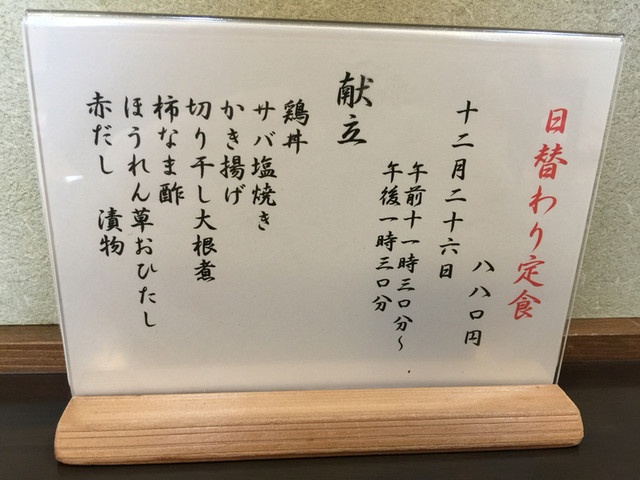 日替わり定食
八八〇円
十二月二十六日
午前十一時三〇分〜
午後一時三〇分
献立
鶏丼
サバ塩焼き
かき揚げ
切り干し大根煮
柿なま酢
ほうれん草おひたし
赤だし 漬物